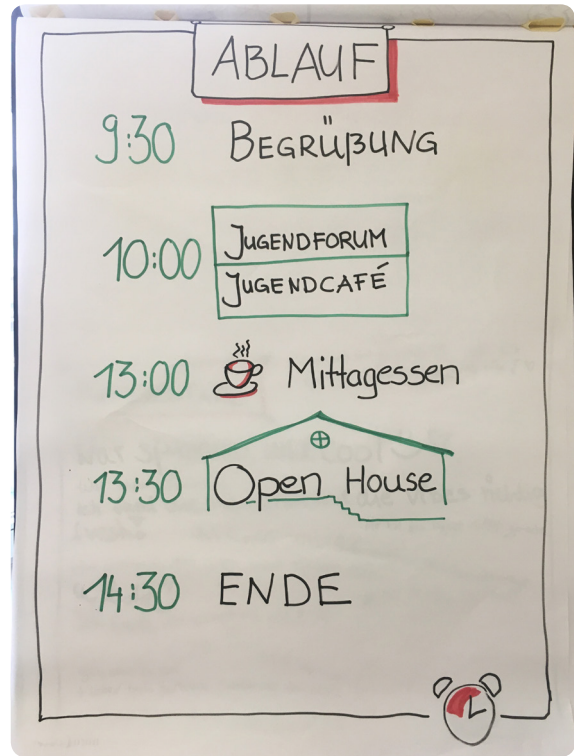 ABLAUF
9:30 BEGRÜßUNG
10:00 JUGENDFORUM
JUGENDCAFÉ
13:00 Mittagessen
13:30 Open House
14:30 ENDE